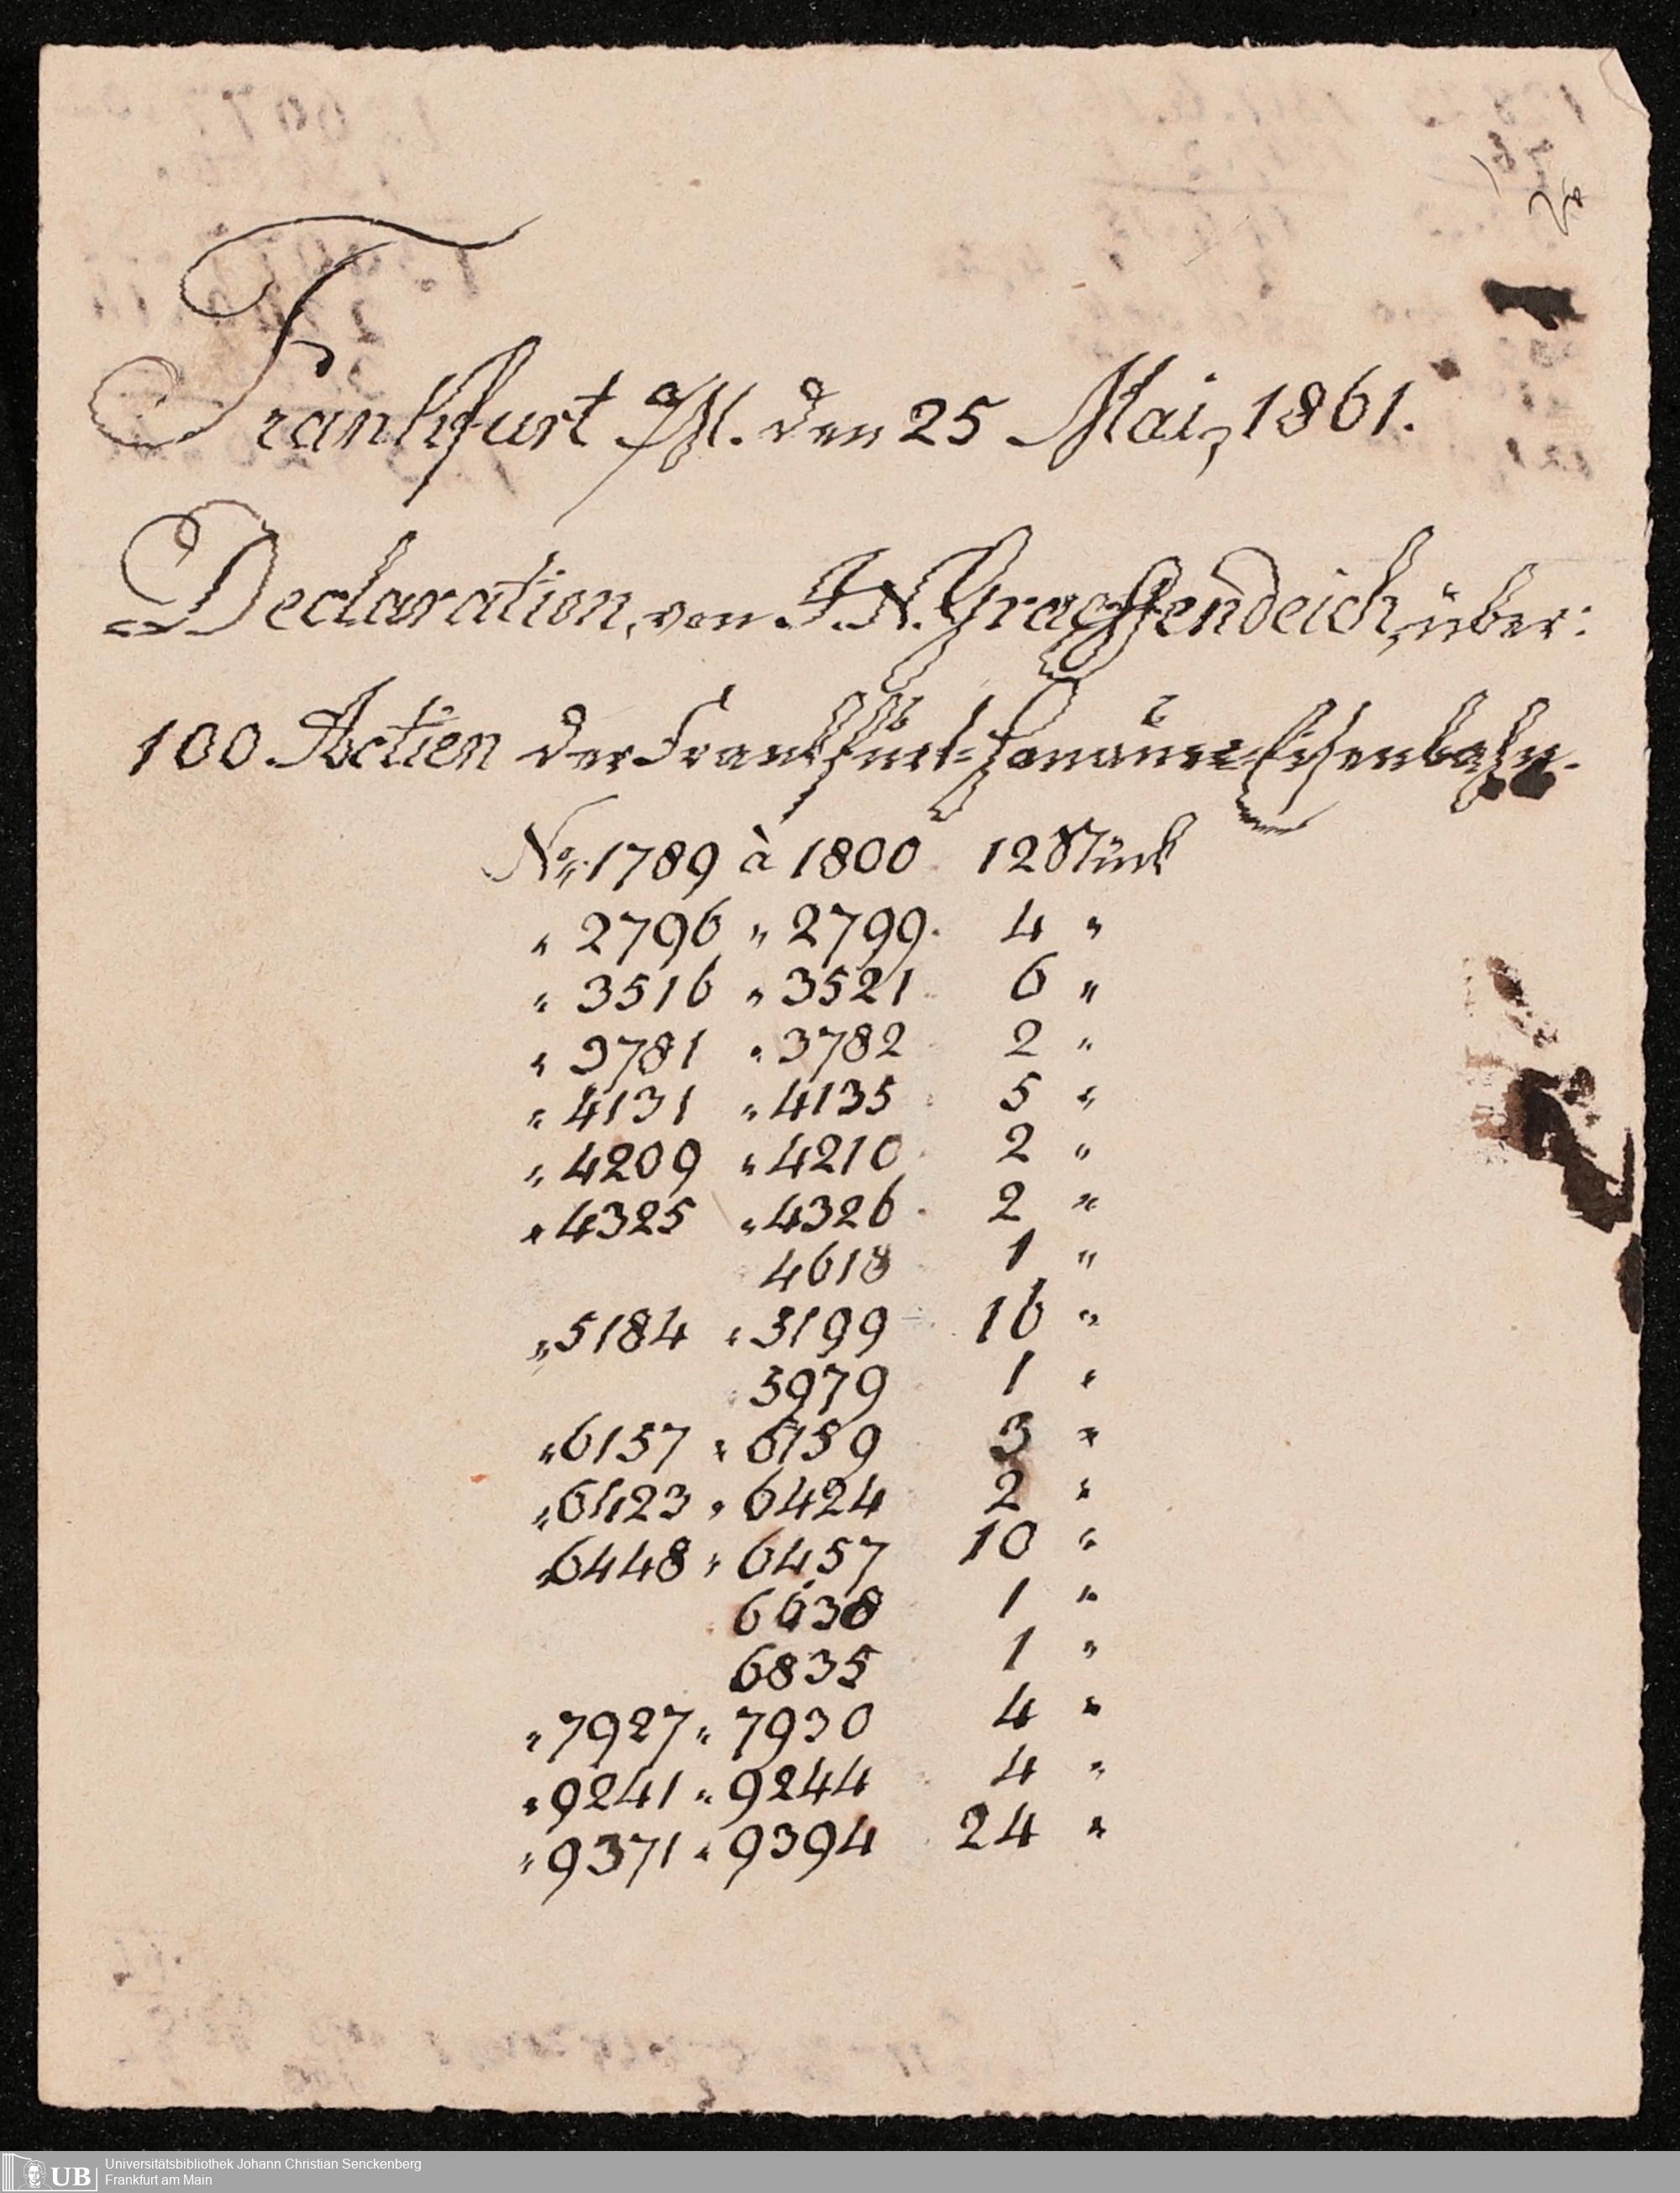 Frankfurt a/M. den 25 Mai, 1861.
Declaration, von J. N. Graeffendeich, über:
100 Actien der Frankfurt-Hanauer Eisenbahn.
No. 1789 à 1800 12 Stück
" 2796 " 2799. 4 "
" 3516 " 3521 6 "
" 3781 " 3782 2 "
" 4131 " 4135 5 "
" 4209 " 4210 2 "
" 4325 " 4326 2 "
4618 1 "
" 5184 " 5199 16 "
5979 1 "
" 6157 " 6159 3 "
" 6423 " 6424 2 "
" 6448 " 6457 10 "
6638 1 "
6835 1 "
" 7927 " 7930 4 "
" 9241 " 9244 4 "
" 9371 " 9394 24 "
UB Universitätsbibliothek Johann Christian Senckenberg
Frankfurt am Main